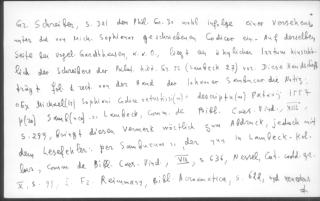 Gr. Schreiber, s. 321 den Phil. Gr. 30 wohl infolge einer Versehens
unter die von Mich. Sophianos geschriebenen Codices ein. Auf derselben
Seite bei Vogel-Gardthausen, a. a. O., liegt ein ähnlicher Irrtum hinsicht-
lich des Schreibers der Palat. Gr. 72 (Lambeck 27) vor. Diese Handschrift
trägt fol. 1 recto von der Hand des Johannes Sambucus die Notiz:
Michaelis Sophiani Codice vetustiss(imo) descripta(m) Patavij 1557
p(er) Samb(ucum). Lambeck, Comm. de Bibl. Caes. Vind., VII²,
s. 299, bringt diesen Vermerk wörtlich zum Abdruck, jedoch mit
dem Lesefehler: per Sambucum; der nur in Lambeck-Kol-
lar, Comm. de Bibl. Caes. Vind., VII, s. 636, Nessel, Cat.
s. 99, F. Reimmann, Bibl. Acroamatica, s. 622, und